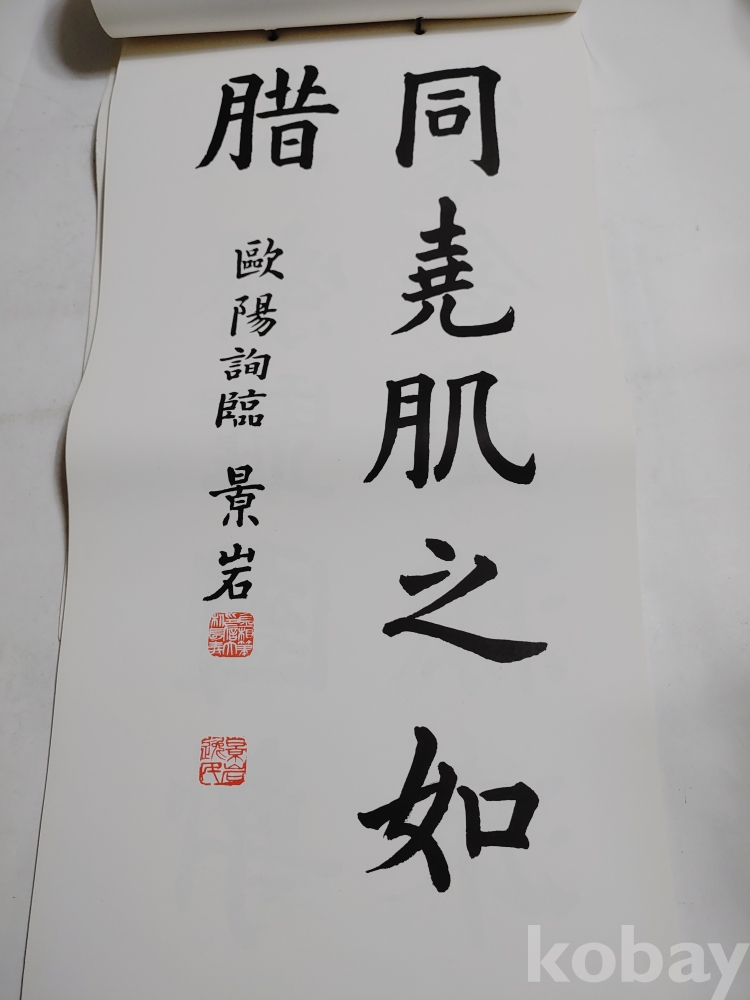 同堯肌之如
腊
歐陽詢臨 景岩
kobay